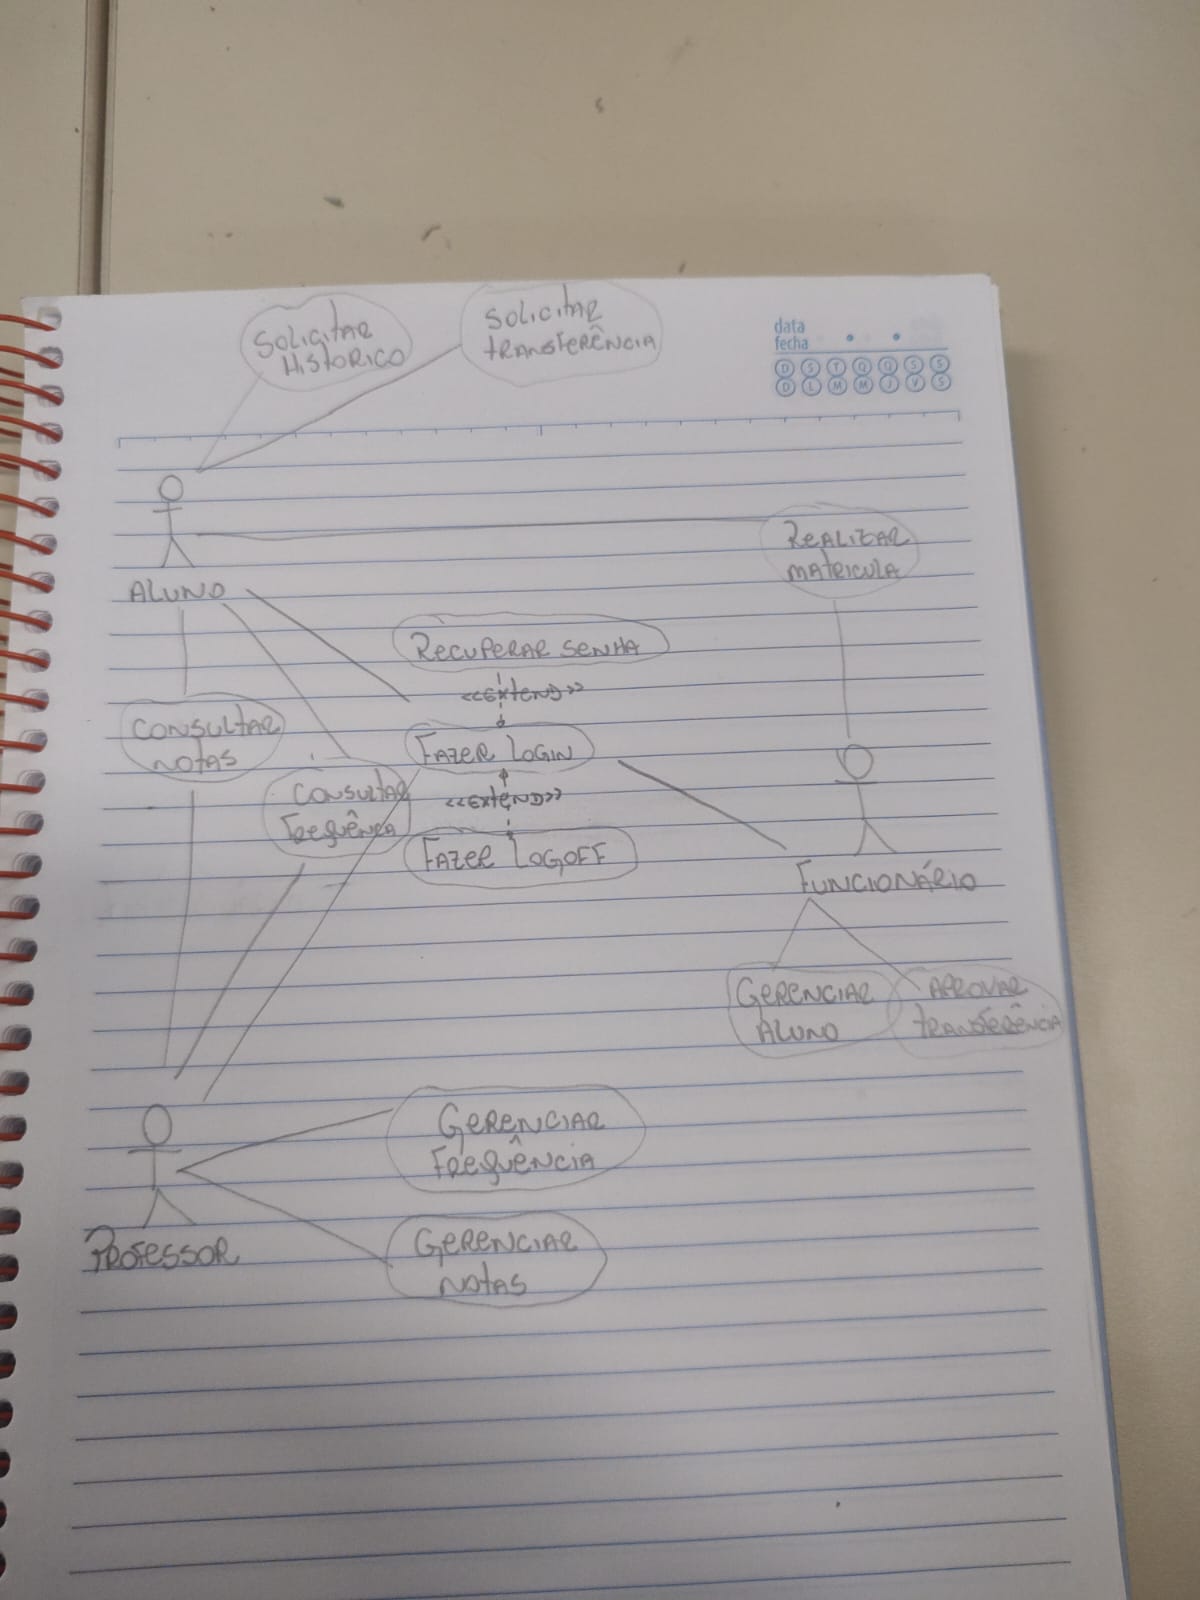 SOLICITAR
HISTORICO
SOLICITAR
TRANSFERÊNCIA
data
fecha
D S T Q Q S S
D L M M J V S
ALUNO
REALIZAR
MATRICULA
RECUPERAR SENHA
<<EXTEND>>
CONSULTAR
NOTAS
FAZER LOGIN
CONSULTAR
<<EXTEND>>
FAZER LOGOFF
FUNCIONÁRIO
GERENCIAR
ALUNO
APROVAR
TRANSFERÊNCIA
GERENCIAR
FREQUÊNCIA
PROFESSOR
GERENCIAR
NOTAS